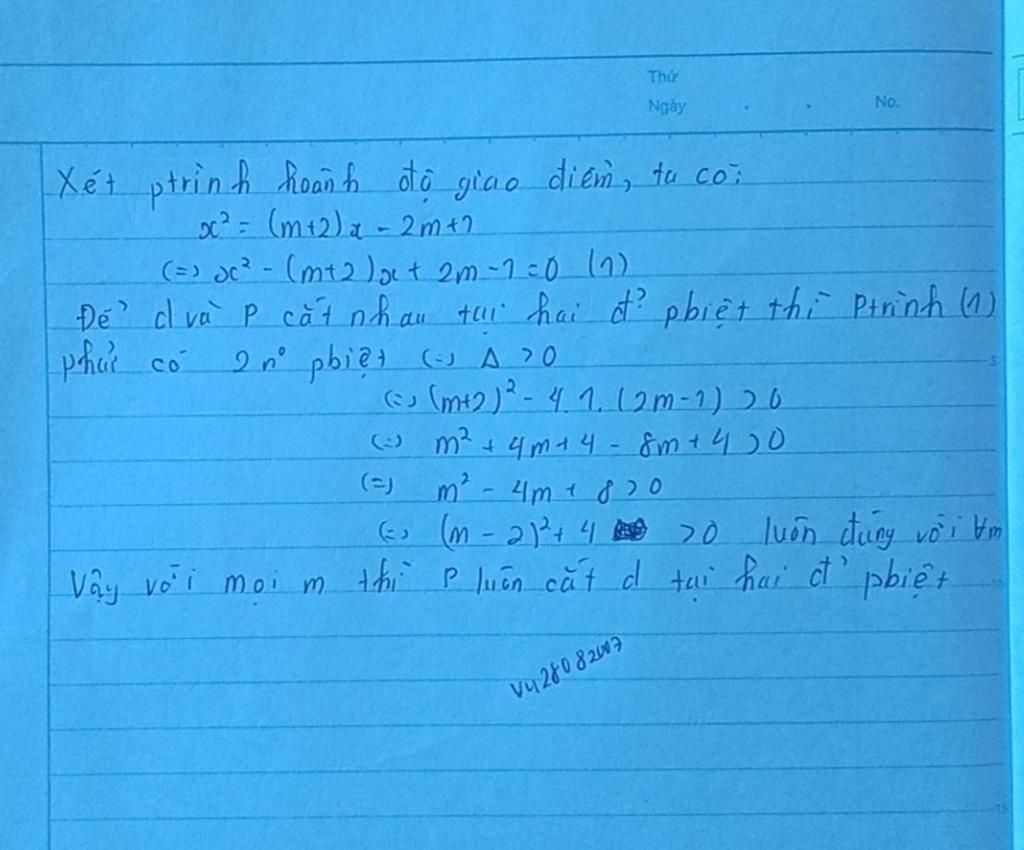 Thứ
Ngày . . No.
Xét ptrình hoành độ giao điểm, ta có:
x² = (m+2)x - 2m+1
(=) x² - (m+2)x + 2m - 1 = 0 (1)
Để d và P cắt nhau tại hai đ² pbiệt thì Ptrình (1)
phải có 2 n⁰ pbiệt (=) Δ > 0
(=) (m+2)² - 4.1.(2m-1) > 0
(=) m² + 4m + 4 - 8m + 4 > 0
(=) m² - 4m + 8 > 0
(=) (m - 2)² + 4 > 0 luôn đúng với ∀m
Vậy với mọi m thì P luôn cắt d tại hai đ' pbiệt
Vy28082007